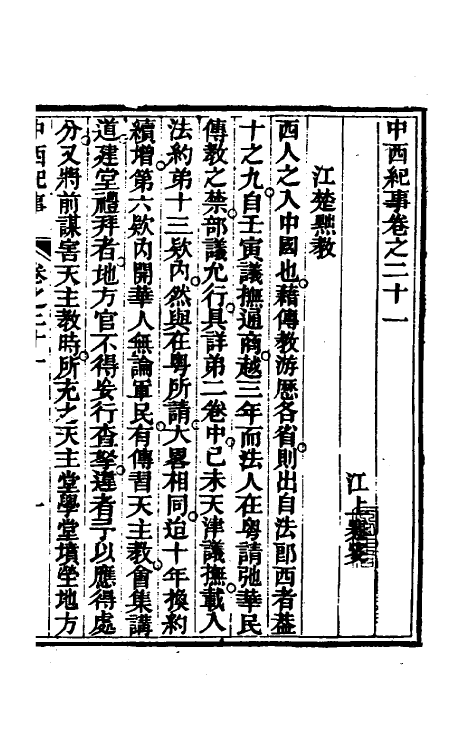 中西紀事卷之二十一
江上蹇叟
江楚黜教
西人之入中國也藉傳教游歷各省則出自法郎西者葢
十之九自壬寅議撫通商越三年而法人在粵請弛華民
傳教之禁部議允行具詳弟二卷中己未天津議撫載入
法約弟十三欵內然與在粵所請大畧相同迨十年換約
續增第六欵內開華人無論軍民有傳習天主教會集講
道建堂禮拜者地方官不得妄行查拏違者予以應得處
分又將前謀害天主教時所充之天主堂學堂墳塋地方
中西紀事
卷之二十一
一